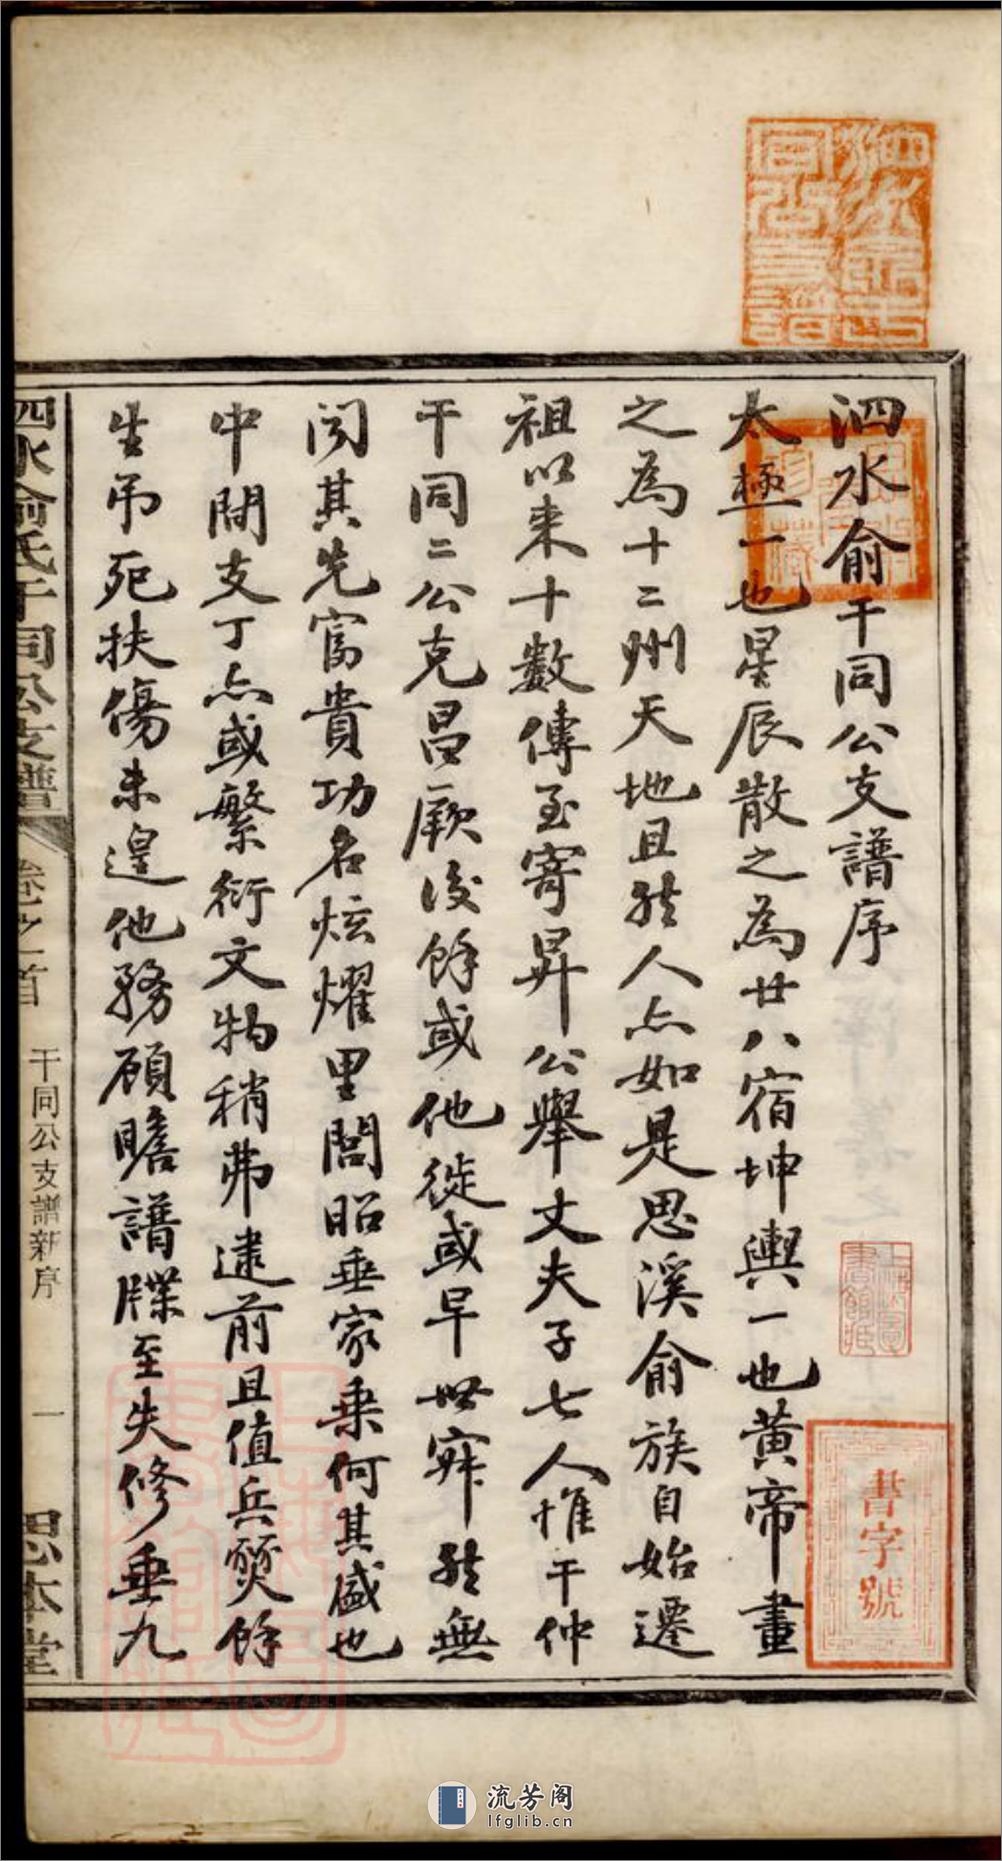 泗水俞干同公支譜序
太極一也星辰散之為廿八宿坤輿一也黄帝畫
之為十二州天地且然人亦如是思溪俞族自始遷
祖以来十數傳至寄昇公舉丈夫子七人惟干仲
干同二公克昌厥後餘或他徙或早世寂然無
闻其先富貴功名炫耀里閭昭垂家乗何其盛也
中間支丁亦或繁衍文物稍弗逮前且值兵燹餘
生吊死扶傷未遑他務顧瞻譜牒至失修垂九
泗水俞氏干同公支譜
卷之首
干同公支譜新序
一
思本堂
書字號
流芳阁
lfglib.cn